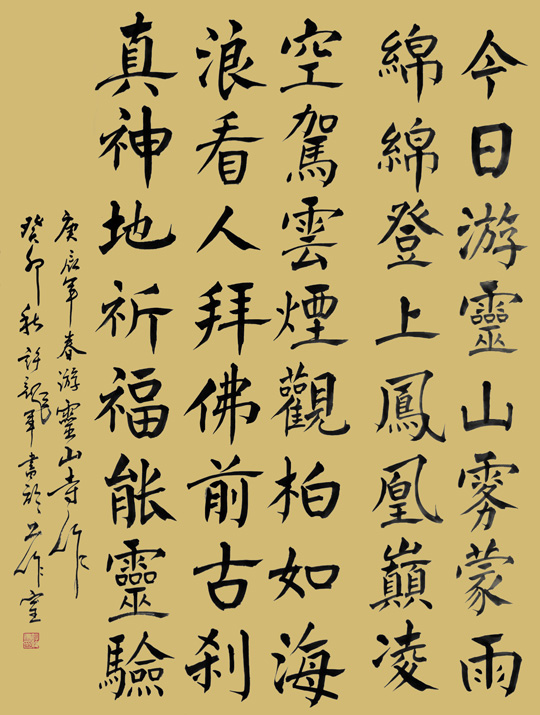 今日游靈山雾蒙雨
綿綿登上鳳凰巔凌
空駕雲煙觀柏如海
浪看人拜佛前古刹
真神地祈福能靈驗
庚辰年春游靈山寺作
癸卯秋許記軍書於工作室